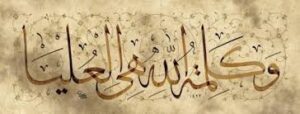 وكلمة الله هي العليا